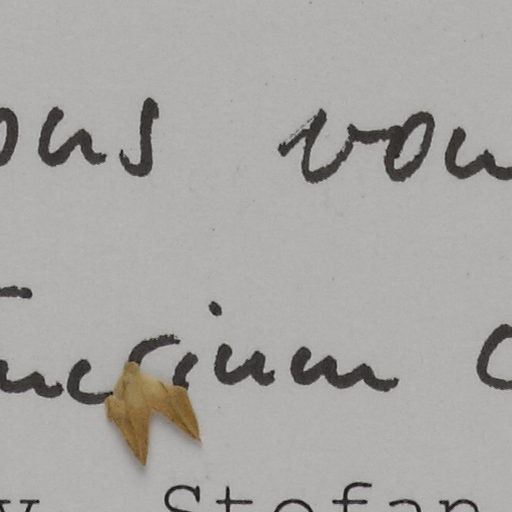 ous vou
ucrium C
y Stefan